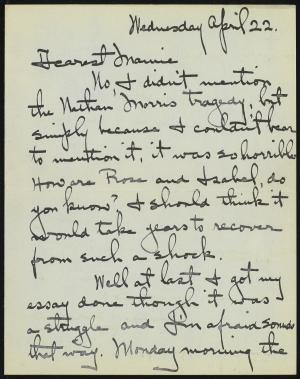 Wednesday April 22.
Dearest Mamie
No I didn't mention
the Nathan Morris tragedy, but
simply because I couldn't bear
to mention it, it was so horrible.
How are Rose and Isabel, do
you know? I should think it
would take years to recover
from such a shock.
Well at last I got my
essay done though it was
a struggle and I'm afraid sounds
that way. Monday morning the